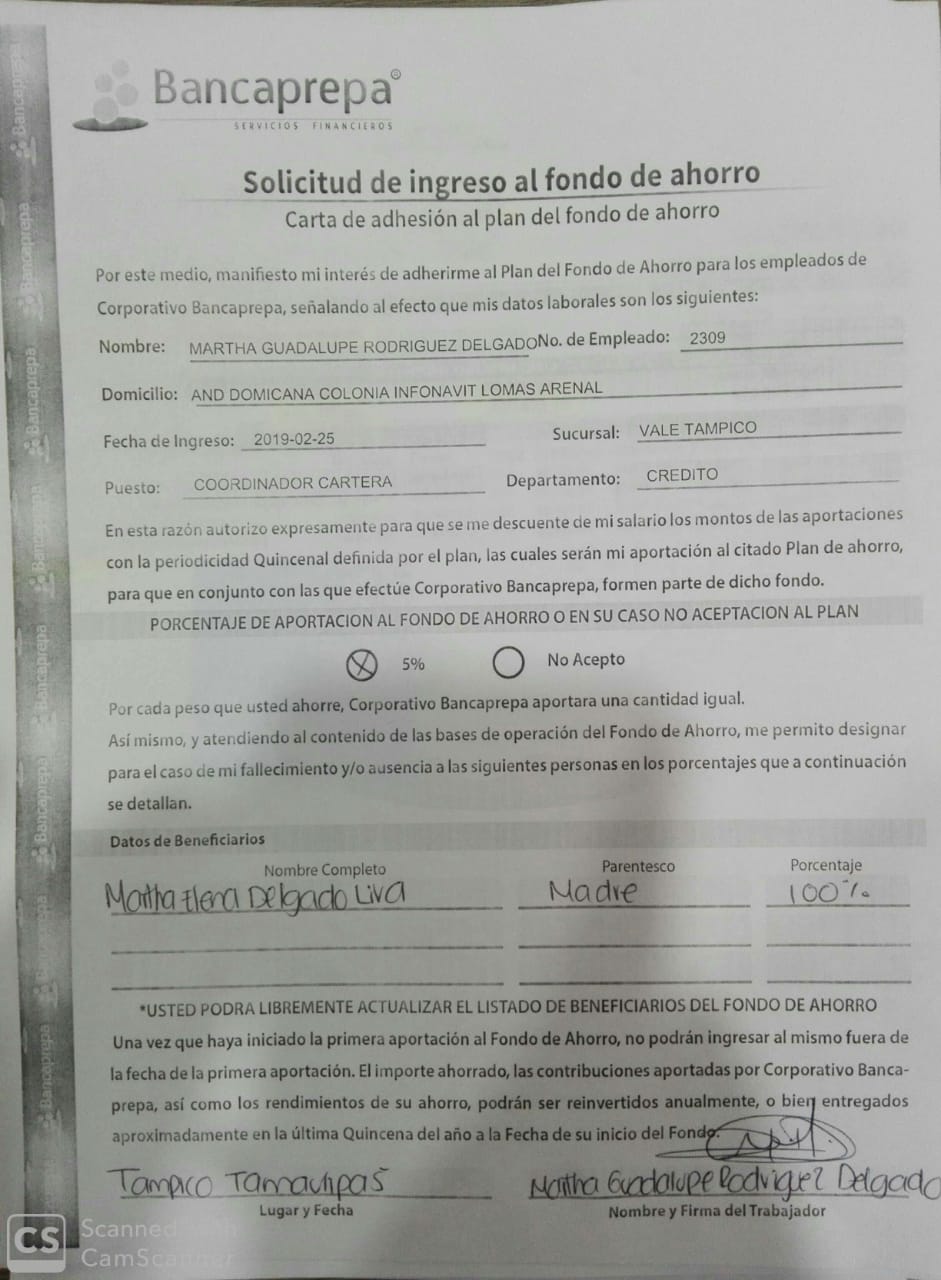 Bancaprepa®
SERVICIOS FINANCIEROS
Solicitud de ingreso al fondo de ahorro
Carta de adhesión al plan del fondo de ahorro
Por este medio, manifiesto mi interés de adherirme al Plan del Fondo de Ahorro para los empleados de
Corporativo Bancaprepa, señalando al efecto que mis datos laborales son los siguientes:
Nombre: MARTHA GUADALUPE RODRIGUEZ DELGADO No. de Empleado: 2309
Domicilio: AND DOMICANA COLONIA INFONAVIT LOMAS ARENAL
Fecha de Ingreso: 2019-02-25 Sucursal: VALE TAMPICO
Puesto: COORDINADOR CARTERA Departamento: CREDITO
En esta razón autorizo expresamente para que se me descuente de mi salario los montos de las aportaciones
con la periodicidad Quincenal definida por el plan, las cuales serán mi aportación al citado Plan de ahorro,
para que en conjunto con las que efectúe Corporativo Bancaprepa, formen parte de dicho fondo.
PORCENTAJE DE APORTACION AL FONDO DE AHORRO O EN SU CASO NO ACEPTACION AL PLAN
5% No Acepto
Por cada peso que usted ahorre, Corporativo Bancaprepa aportara una cantidad igual.
Así mismo, y atendiendo al contenido de las bases de operación del Fondo de Ahorro, me permito designar
para el caso de mi fallecimiento y/o ausencia a las siguientes personas en los porcentajes que a continuación
se detallan.
Datos de Beneficiarios
Nombre Completo Parentesco Porcentaje
Martha Elena Delgado Liva Madre 100%
*USTED PODRA LIBREMENTE ACTUALIZAR EL LISTADO DE BENEFICIARIOS DEL FONDO DE AHORRO
Una vez que haya iniciado la primera aportación al Fondo de Ahorro, no podrán ingresar al mismo fuera de
la fecha de la primera aportación. El importe ahorrado, las contribuciones aportadas por Corporativo Banca-
prepa, así como los rendimientos de su ahorro, podrán ser reinvertidos anualmente, o bien entregados
aproximadamente en la última Quincena del año a la Fecha de su inicio del Fondo.
Tampico Tamaulipas Martha Guadalupe Rodriguez Delgado
Lugar y Fecha Nombre y Firma del Trabajador
CS Scanned with
CamScanner